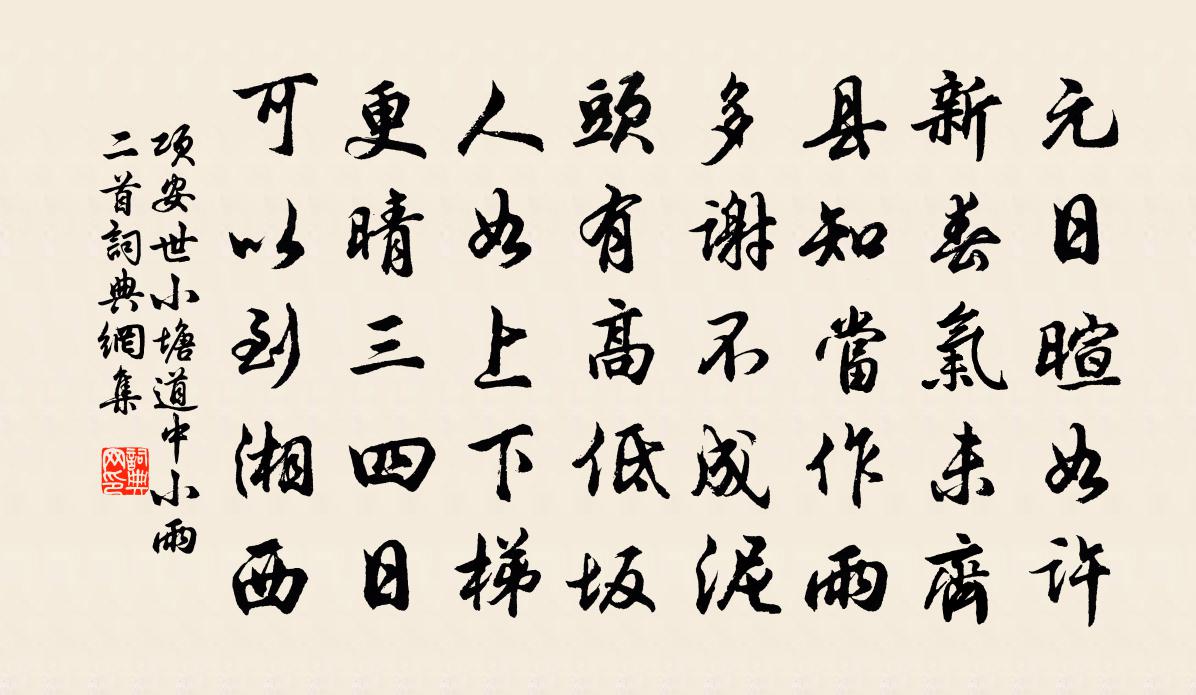 元日暄如許
新春氣未齊
县知當作雨
多謝不成泥
頭有高低坂
人如上下梯
更晴三四日
可以到湘西
項安世小塘道中小雨
二首詞典網集
詞典网印